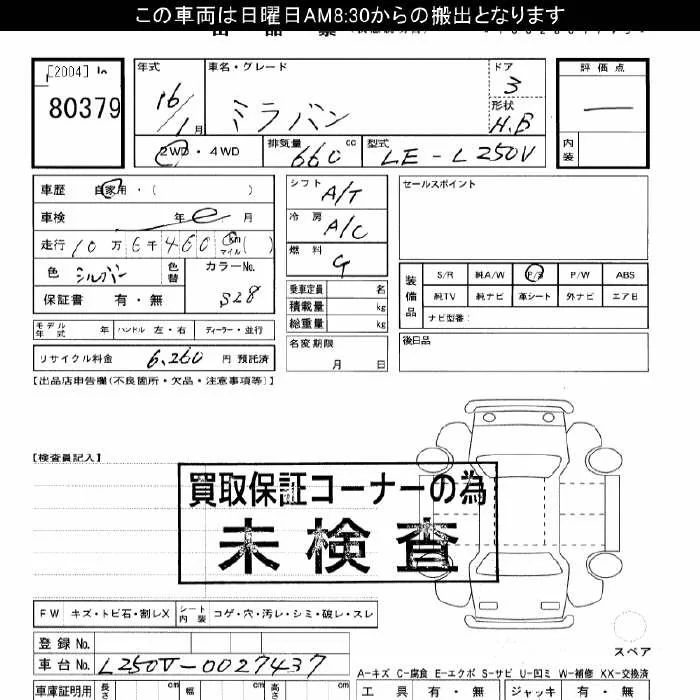 この車両は日曜日AM8:30からの搬出となります
[2004]
80379
年式 車名・グレード ドア 評価点
16/1月 ミラバン 3
形状 H.B
2WD・4WD 排気量 660 cc 型式 LE-L250V 内装
車歴 自家用・( ) シフト A/T セールスポイント
車検 年 月 冷房 A/C
走行 10万6千460 km マイル ( ) 燃料 G
色 シルバー 色替 カラーNo. S28
S/R 純A/W P/S P/W ABS
保証書 有・無 乗車定員 名
積載量 kg
総重量 kg
装備品 純TV 純ナビ 革シート 外ナビ エアB
ナビ型番:
モデル年式 年 ハンドル 左・右 ディーラー・並行
名変期限 月 日 後日品
リサイクル料金 6,260 円 預託済
【出品店申告欄(不良箇所・欠品・注意事項等)】
【検査員記入】
買取保証コーナーの為
未検査
FW キズ・トビ石・割レX シート内装 コゲ・穴・汚レ・シミ・破レ・スレ
登録No.
スペア
車台No. L250V-0027437
A-キズ C-腐食 E-エクボ S-サビ U-凹ミ W-補修 XX-交換済
車庫証明用 長さ cm 幅 cm 高さ cm 工具 有・無 ジャッキ 有・無